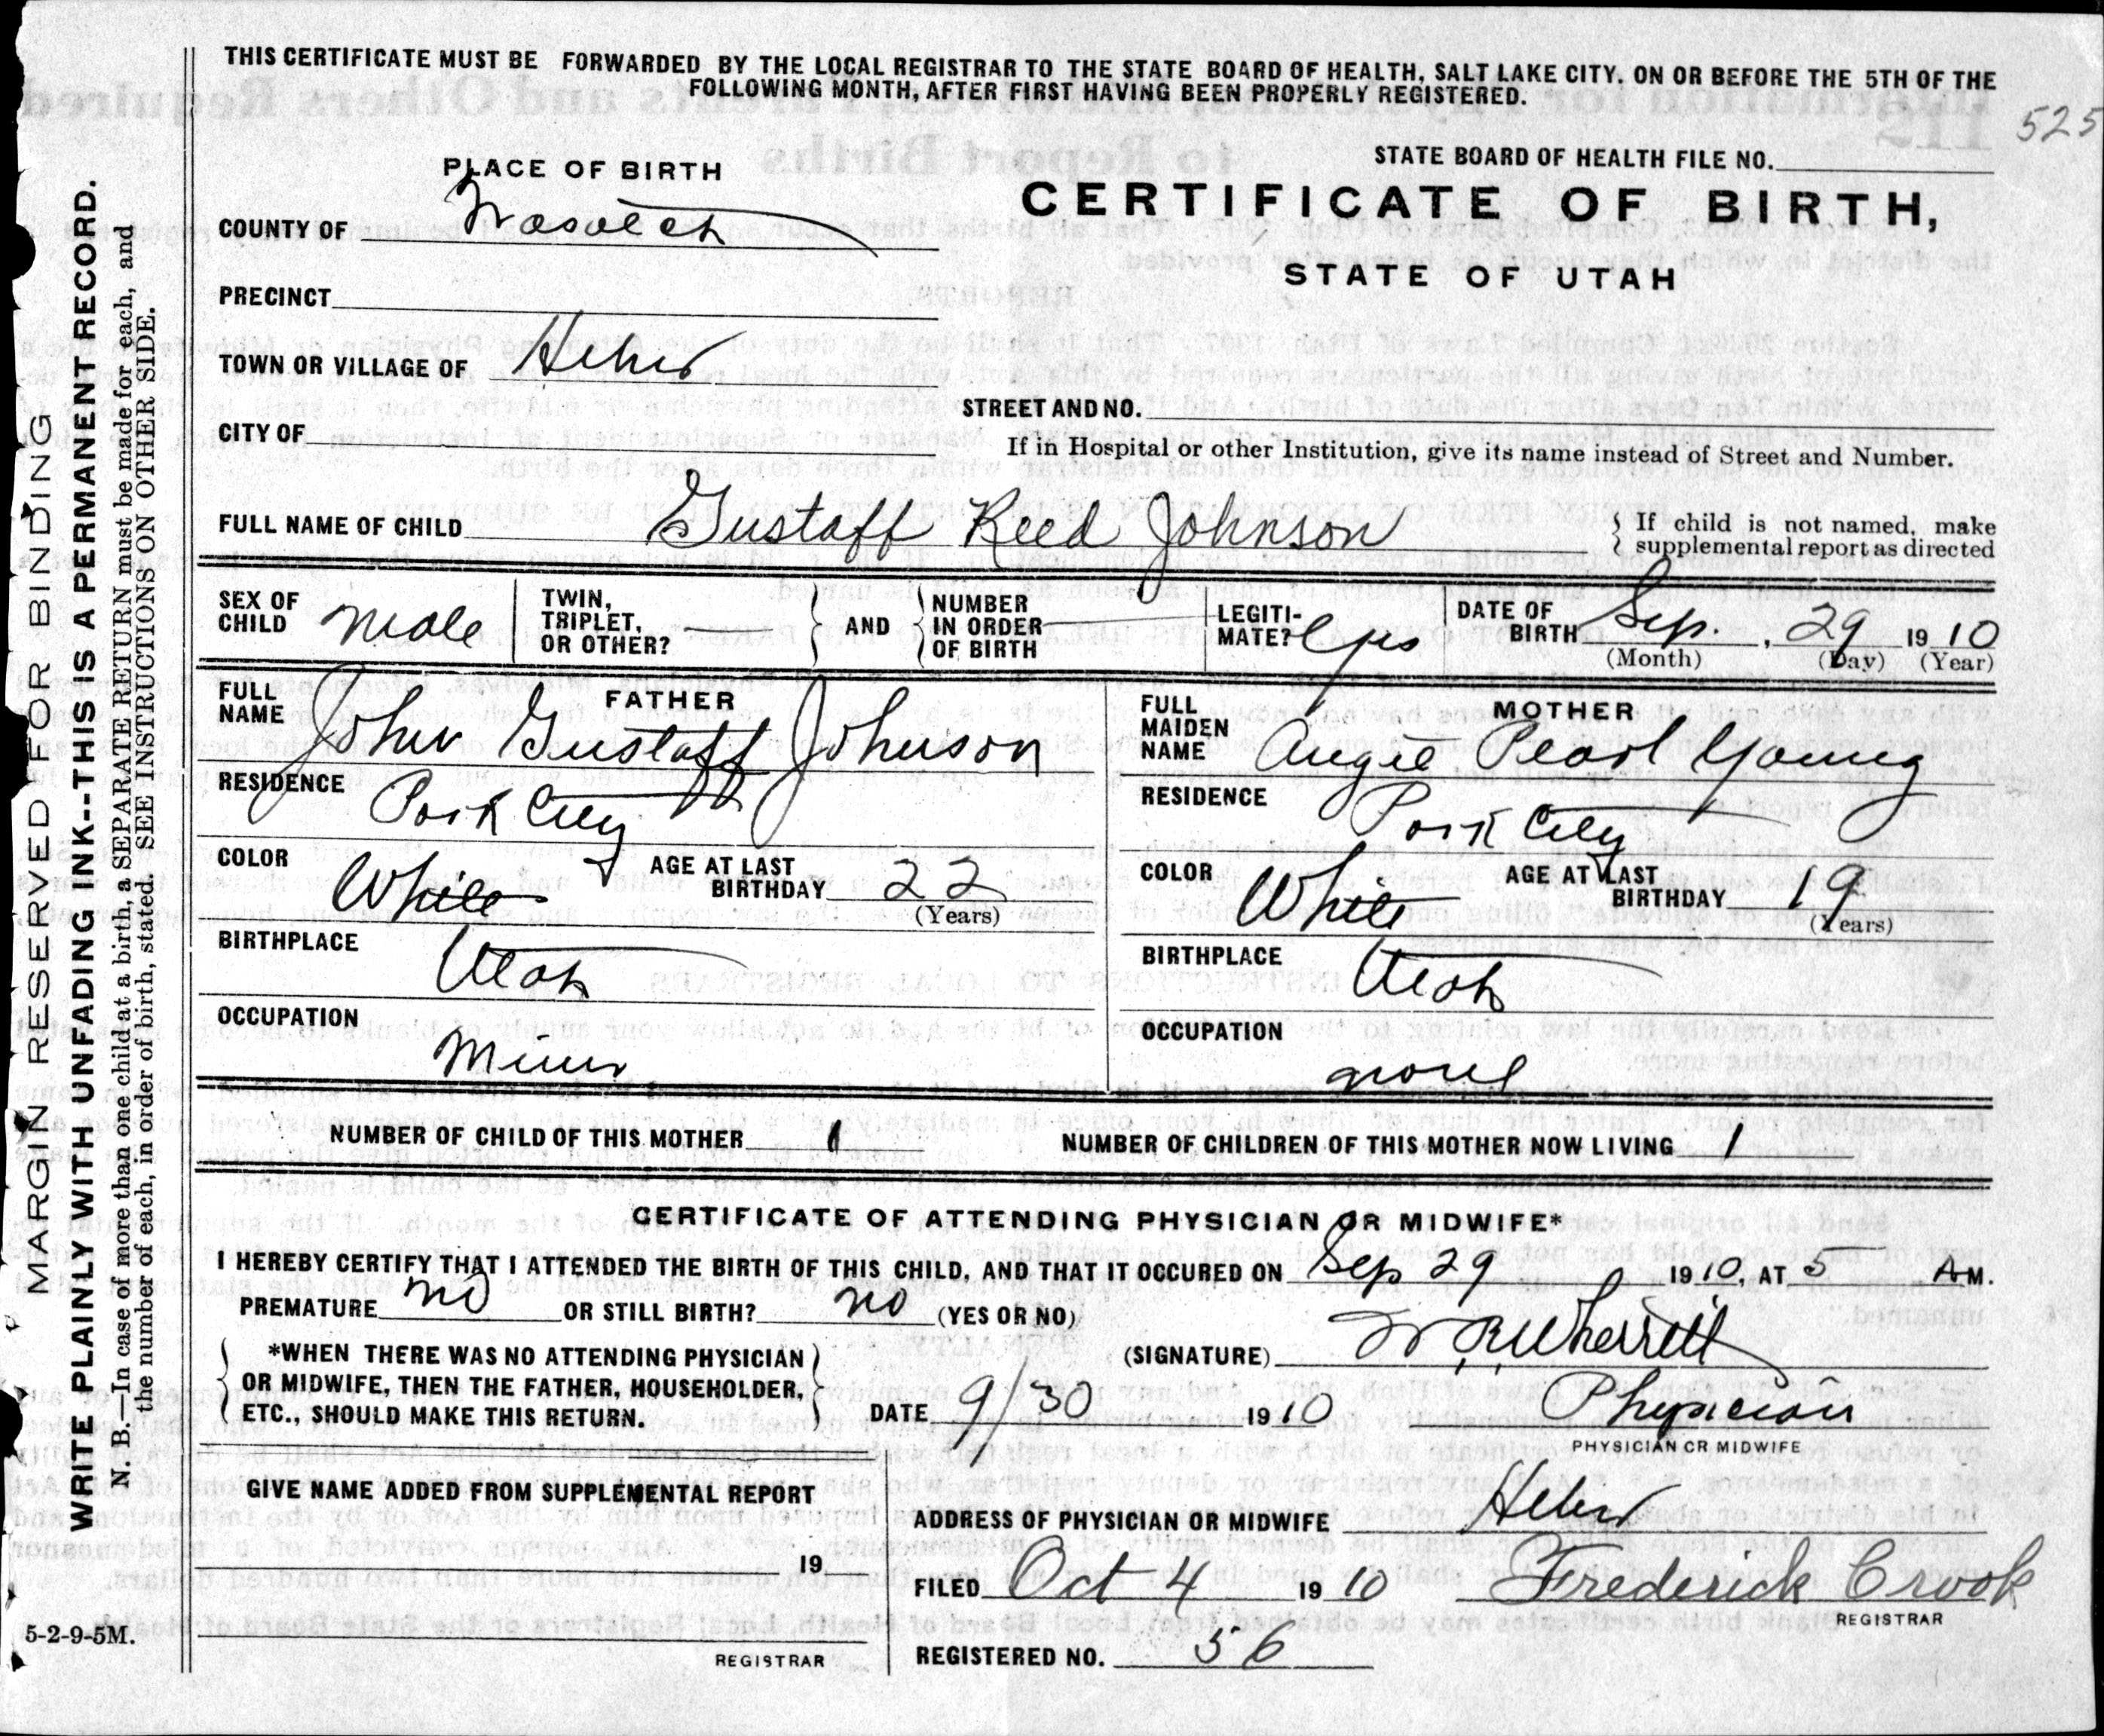 THIS CERTIFICATE MUST BE FORWARDED BY THE LOCAL REGISTRAR TO THE STATE BOARD OF HEALTH, SALT LAKE CITY, ON OR BEFORE THE 5TH OF THE
FOLLOWING MONTH, AFTER FIRST HAVING BEEN PROPERLY REGISTERED.
525
STATE BOARD OF HEALTH FILE NO.
PLACE OF BIRTH
CERTIFICATE OF BIRTH,
STATE OF UTAH
COUNTY OF Wasatch
PRECINCT
TOWN OR VILLAGE OF Heber
STREET AND NO.
CITY OF
If in Hospital or other Institution, give its name instead of Street and Number.
FULL NAME OF CHILD Gustaff Reed Johnson
If child is not named, make
supplemental report as directed
SEX OF CHILD Male
TWIN, TRIPLET, OR OTHER?
AND
NUMBER IN ORDER OF BIRTH
LEGITI-MATE? yes
DATE OF BIRTH Sep. , 29 1910
(Month) (Day) (Year)
FATHER
FULL NAME John Gustaff Johnson
RESIDENCE Park City
COLOR White AGE AT LAST BIRTHDAY 22
(Years)
BIRTHPLACE Utah
OCCUPATION
Miner
MOTHER
FULL MAIDEN NAME Angie Pearl Young
RESIDENCE Park City
COLOR White AGE AT LAST BIRTHDAY 19
(Years)
BIRTHPLACE Utah
OCCUPATION
none
NUMBER OF CHILD OF THIS MOTHER 1 NUMBER OF CHILDREN OF THIS MOTHER NOW LIVING 1
CERTIFICATE OF ATTENDING PHYSICIAN OR MIDWIFE*
I HEREBY CERTIFY THAT I ATTENDED THE BIRTH OF THIS CHILD, AND THAT IT OCCURED ON Sep 29 1910, AT 5 A.M.
PREMATURE no OR STILL BIRTH? no (YES OR NO)
*WHEN THERE WAS NO ATTENDING PHYSICIAN
OR MIDWIFE, THEN THE FATHER, HOUSEHOLDER,
ETC., SHOULD MAKE THIS RETURN.
(SIGNATURE) W R Wherritt
DATE 9/30 1910 Physician
PHYSICIAN OR MIDWIFE
GIVE NAME ADDED FROM SUPPLEMENTAL REPORT
19
REGISTRAR
ADDRESS OF PHYSICIAN OR MIDWIFE Heber
FILED Oct 4 1910 Frederick Crook
REGISTRAR
REGISTERED NO. 56
5-2-9-5M.
MARGIN RESERVED FOR BINDING
WRITE PLAINLY WITH UNFADING INK--THIS IS A PERMANENT RECORD.
N. B.—In case of more than one child at a birth, a SEPARATE RETURN must be made for each, and
the number of each, in order of birth, stated. SEE INSTRUCTIONS ON OTHER SIDE.